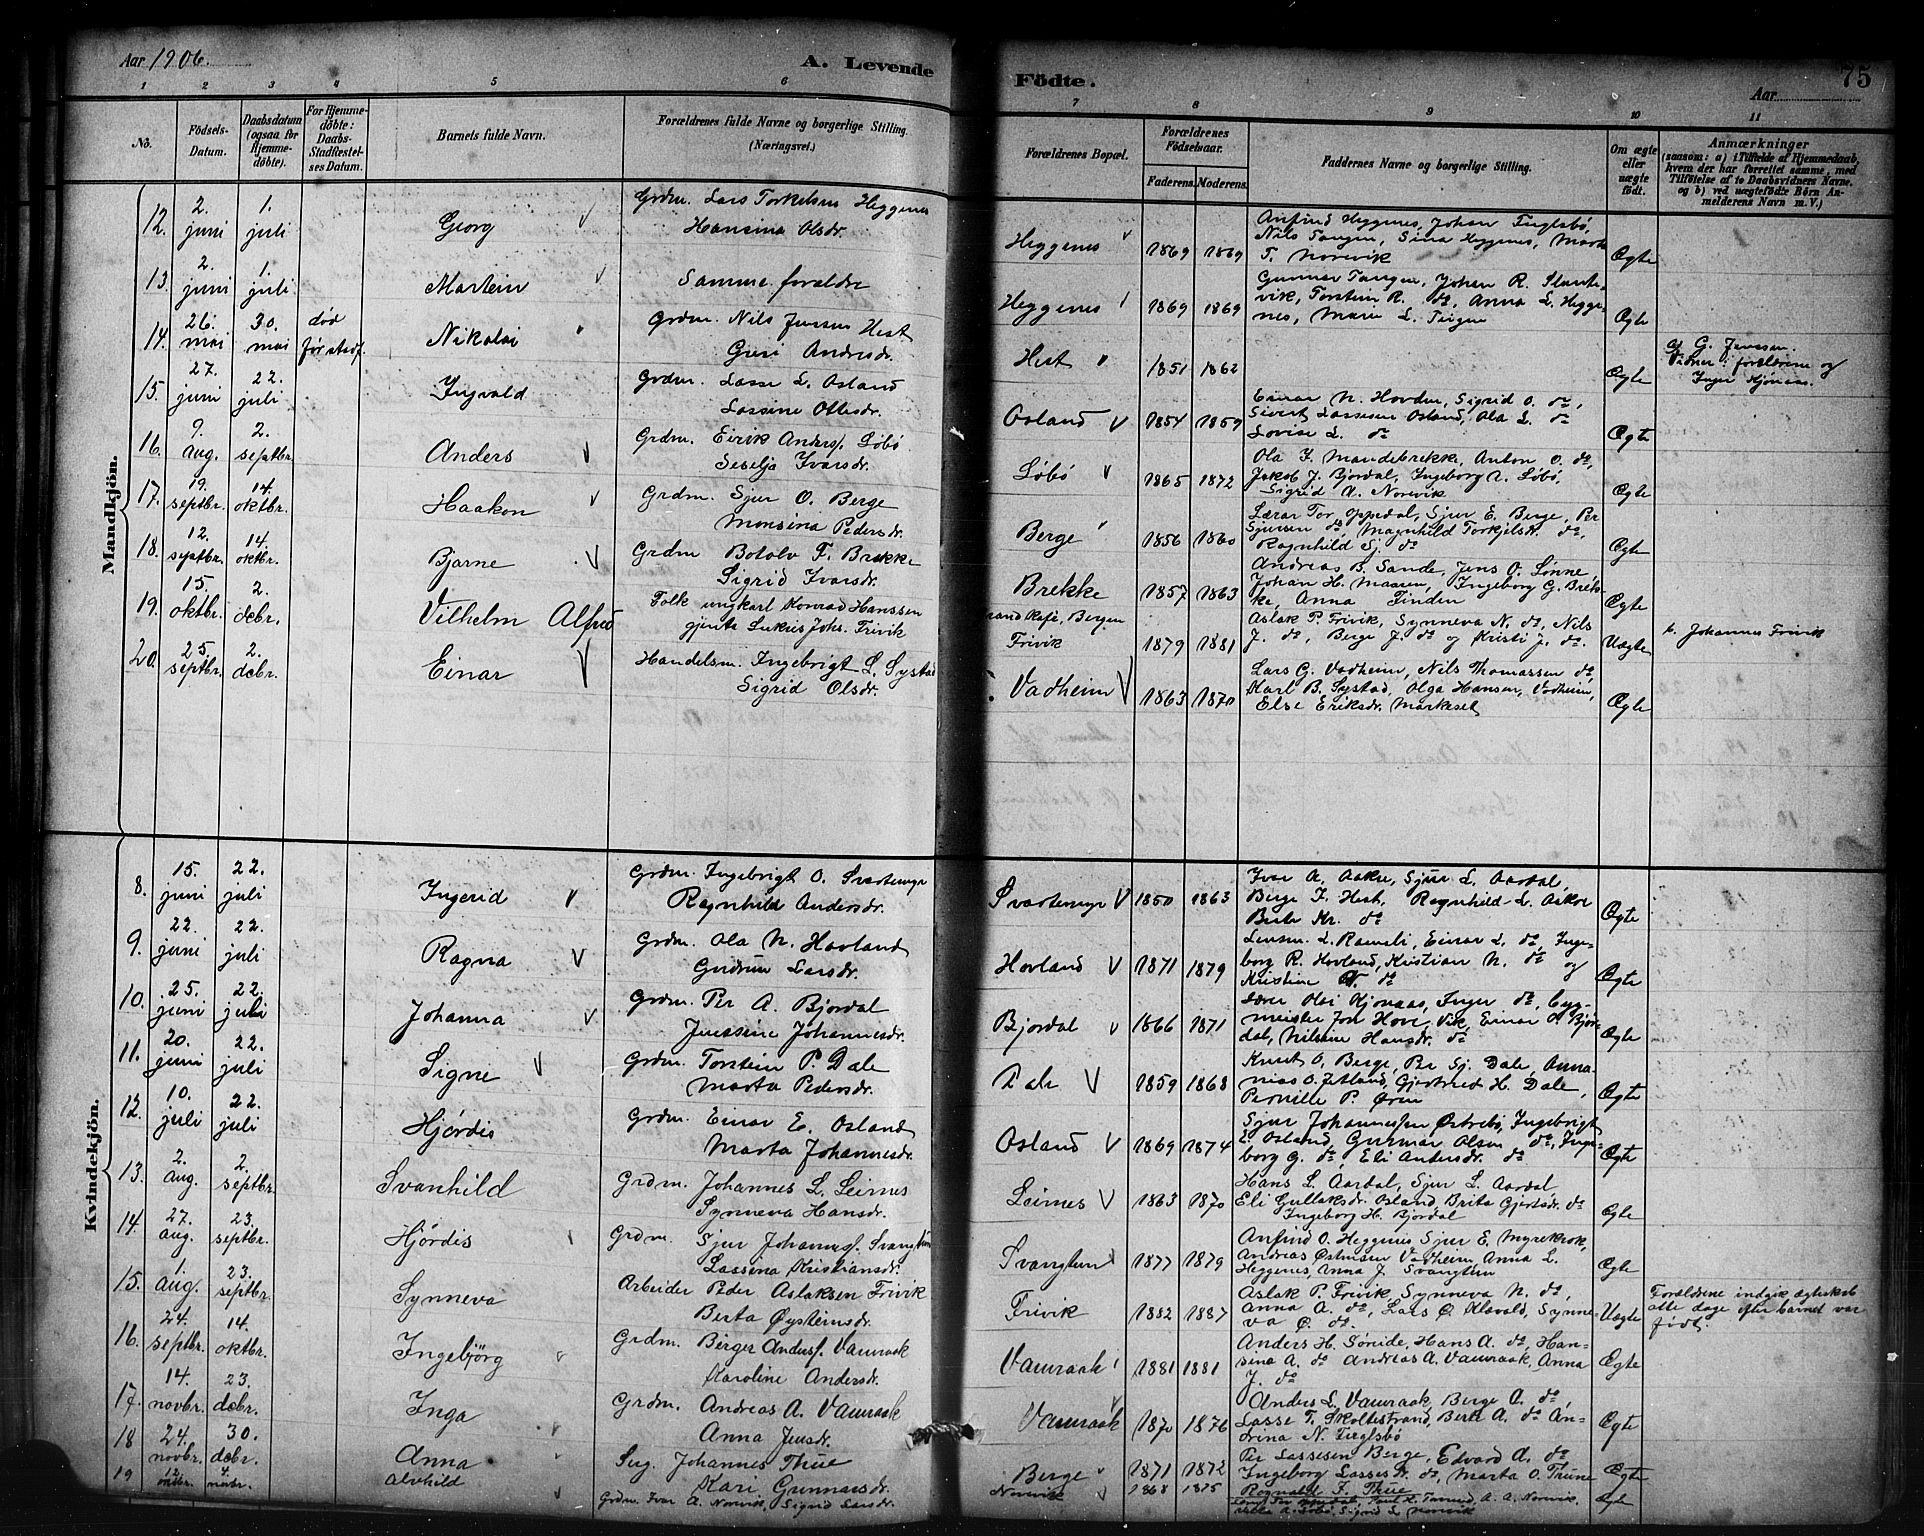 Aar 1906.
A. Levende
Födte.
75
Aar
1 2 3 4 5 6 7 8 9 10 11
No. Födsels-Datum. Daabsdatum (ogsaa for Hjemme-döbte). For Hjemme-döbte: Daabs-Stadfæstel-ses Datum. Barnets fulde Navn. Forældrenes fulde Navne og borgerlige Stilling. (Næringsvei.)
Forældrenes Bopæl. Forældrenes Födselsaar. Faderens. Moderens. Faddernes Navne og borgerlige Stilling. Om ægte eller uægte født.
Anmærkninger
(saasom: a) i Tilfælde af Hjemmedaab,
hvem der har forrettet samme, med
Tilföielse af to Daabsvidners Navne.
og b) ved uægtefödte Börn An-
melderens Navn m. V.)
Mandkjön.
12. 2. juni 1. juli Georg Grdm. Lars Torkelsen Heggenes
Hansina Olsdr.
Heggenes 1869 1869 Anfind Heggenes, Johan Fuglsbø,
Nils Tangen, Sina Heggenes, Marta
T. Norevik Ægte
13. 2. juni 1. juli Martein Samme foræld​re
Heggenes 1869 1869 Gunnar Tangen, Johan R.
vik, Torstein R. do, Anna L. Hegge-
nes, Marie L. Teigen Ægte
14. 26. mai 30. mai død før stadf. Nikolai Grdm. Nils Jenssen Hest
Guri Andersdr.
Hest 1851 1862 Ægte af G. Jenssen.
Vidner: forældrene og
Inger Hjønaas.
15. 27. juni 22. juli Ingvald Grdm. Lasse L. Osland
Lassine Ottesdr.
Osland 1854 1859 Einar N. Hovden, Sigrid O. do,
Sivert Lassesen Osland, Ola L. do
Lovise L. do Ægte
16. 9. aug. 2. septbr. Anders Grdm. Eirik Anders. Løbø
Seselja Ivarsdr.
Løbø 1865 1872 Ola I. Mandebrekke, Anton O. do,
Jakob J. Bjordal, Ingeborg A. Løbø,
Sigrid A. Norevik Ægte
17. 19. septbr. 14. oktbr. Haakon Grdm. Sjur O. Berge
Monsina Pedersdr.
Berge 1856 1860 Lærar Tor Oppdal, Sjur E. Berge, Per
Sjursen do, Magnhild Torkjelsdr. do,
Ragnhild Sj. do Ægte
18. 12. septbr. 14. oktbr. Bjarne Grdm Botolv F. Brekke
Sigrid Ivarsdr.
Brekke 1857 1863 Andreas B. Sande, Jens O. Lønne
Johan H. Maaren, Ingeborg G. Brek-
ke, Anna Finden Ægte
19. 15. oktbr. 2. debr. Vilhelm Alfred Folk ungkarl Konrad Hanssen
gjente Lukris Johs. Frivik
Kafé, Bergen
Frivik 1879 1881 Aslak P. Frivik, Synneva N. do, Nils
J. do, Berge J. do og Kristi J. do. Uægte Johannes Frivik
20. 25. septbr. 2. debr. Einar Handelsm. Ingebrigt L. Systad
Sigrid Olsdr.
Vadheim 1863 1870 Lars G. Vadheim, Nils Thomassen do,
Karl B. Systad, Olga Hansen, Vadheim,
Else Eriksdr. Markeset Ægte
Kvindekjön.
8. 15. juni 22. juli Ingerid Grdm. Ingebrigt O. Svartemyr
Ragnhild Andersdr.
Svartemyr 1850 1863 Ivar A. Aaker, Sjur L. Aardal,
Berge F. Hest, Ragnhild L. Asker
Berte Kr. do Ægte
9. 22. juni 22. juli Ragna Grdm. Ola N. Hovland
Gudrun Larsdr.
Hovland 1871 1879 Lensm. L. Ramsli, Einar L. do, Inge-
borg R. Hovland, Kristian N. do og
Kristine N. do Ægte
10. 25. juni 22. juli Johanna Grdm. Per A. Bjordal
Jenssine Johannesdr.
Bjordal 1866 1871 Lærer Oli Hjønaas, Inger do, byg-
meister Jon Hove, Vik, Einar A. Bjor-
dal, Nilsine Hansdr. do Ægte
11. 20. juni 22. juli Signe Grdm. Torstein P. Dale
Marta Pedersdr.
Dale 1859 1868 Knut O. Berge, Per Sj. Dale, Anna-
nias O. Jetland, Gjertrud H. Dale,
Pernille P. Øren Ægte
12. 10. juli 22. juli Hjørdis Grdm. Einar E. Osland
Marta Johannesdr.
Osland 1869 1874 Sjur Johannessen Østrebø, Ingebrigt
E. Osland, Gunnar Olsen do, Inge-
borg G. do, Eli Andersdr. do Ægte
13. 2. aug. 2. septbr. Svanhild Grdm. Johannes L. Leirnes
Synneva Hansdr.
Leirnes 1863 1870 Hans L. Aardal, Sjur L. Aardal
Eli Gullaksdr. Osland, Brita Gjertsdr. do
Ingeborg H. Bjordal Ægte
14. 27. aug. 23. septbr. Hjørdis Grdm. Sjur Johannes. Svangtun
Lassena Kristiansdr.
Svangtun 1877 1879 Anfind O. Heggenes Sjur E. Myrekrok,
Andreas Østensen Vadheim, Anna L.
Heggenes, Anna J. Svangtun Ægte
15. 1. aug. 23. septbr Synneva Arbeider Peder Aslaksen Frivik
Berta Øysteinsdr.
Frivik 1882 1887 Aslak P. Frivik, Synneva N. do,
Anna A. do, Lars Ø. Klævold, Synne-
va Ø. do. Uægte Forældrene indgik ægteskab
otte dage efter barnet var
født.
16. 24. septbr. 14. oktbr. Ingebjörg Grdm. Birger Anders. Vamraak
Karoline Andersdr.
Vamraak 1881 1881 Anders H. Søreide, Hans A. do, Han-
sina A. do Andreas A. Vamraak, Anna
J. do Ægte
17. 14. novbr. 23. debr. Inga Grdm. Andreas A. Vamraak
Anna Jensdr.
Vamraak 1870 1876 Anders L. Vamraak, Berge A. do,
Lasse T. Skoltestrand, Berte A. do An-
drina N. Fuglsbø Ægte
18 24. novbr. 30. debr. Anna Sug. Johannes Thue
Kari Gunnarsdr.
Berge 1871 1872 Per Lassesen Berge, Edvard A. do
Ingeborg Lassesdr. do, Marta O. Trune
Ragnald I. Thue Ægte
19 12. 4. novbr. Alvhild Grdm Ivar A. Norevik, Sigrid Larsdr.
Norevik 1868 1875 A. A. Norevik,
A. Løbø, Sigrid L. Norevik Ægte